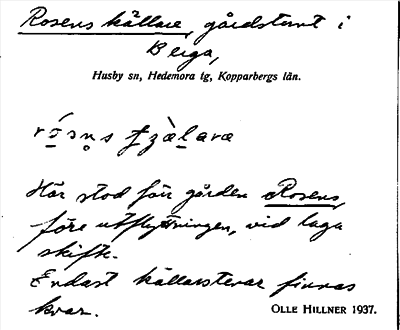 Rosens källare, gårdstomt i
Berga,
Husby sn, Hedemora tg, Kopparbergs län.
Här stod förr gården Rosens,
före utflyttningen, vid laga
skifte.
Endast källarstenar finnas
kvar.
OLLE HILLNER 1937.